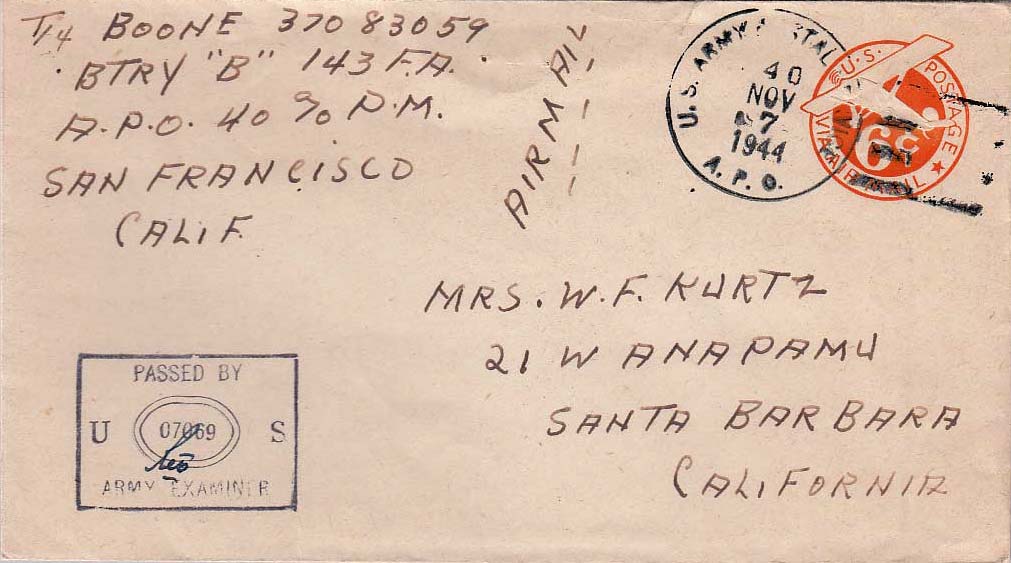 T/4 BOONE 37083059
BTRY "B" 143 F.A.
A.P.O. 40 % P.M.
SAN FRANCISCO
CALIF.
AIRMAIL
U.S. ARMY POSTAL
40
NOV
7
1944
A.P.O.
U.S. POSTAGE
6c
VIA AIR MAIL
MRS. W.F. KURTZ
21 W ANAPAMU
SANTA BARBARA
CALIFORNIA
PASSED BY
U 07069 S
ARMY EXAMINER